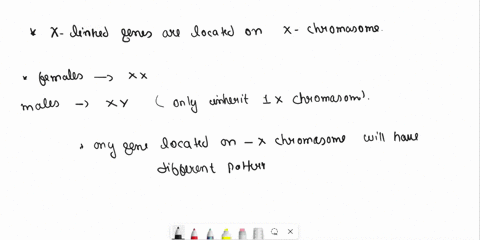 * X-linked genes are located on X-chromasome.
* females → XX
males → XY ( only inherit 1 X chromasom).
* any gene located on -X chromasome will have
different patter